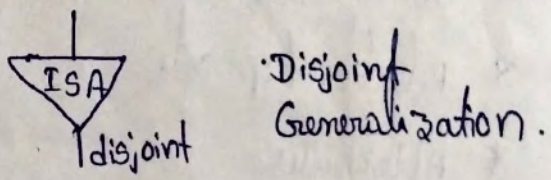 ISA
disjoint
·Disjoint
Generalization.